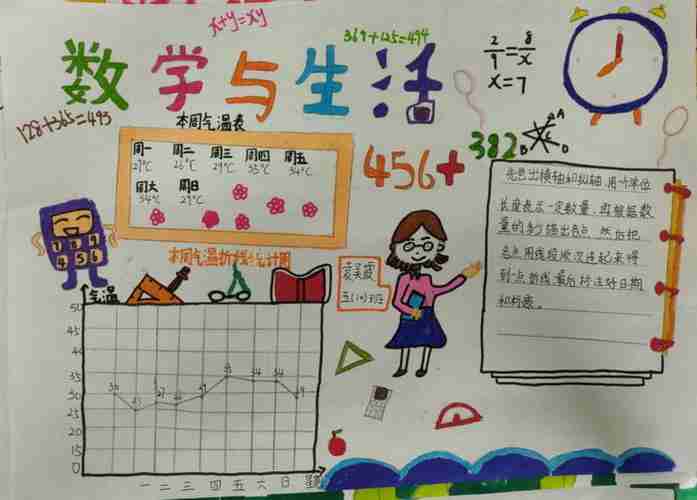 x+y=xy
369+125=494
数学与生活
2/9=8/x
x=7
128+365=493
本周气温表
周一 周二 周三 周四 周五
27℃ 26℃ 29℃ 35℃ 34℃
周六 周日
34℃ 29℃
456+382
A
B
C
D
先画出横轴和纵轴,用一个单位
长度表示一定数量,再根据数
量的多少描出各点,然后把
各点用线段顺次连起来得
到
折线,最后标注好日期
和标题。
7 8 9
4 5 6
本周气温折线统计图
五(10)班
气温
50
45
40
35
30
25
20
15
0
一 二 三 四 五 六 日